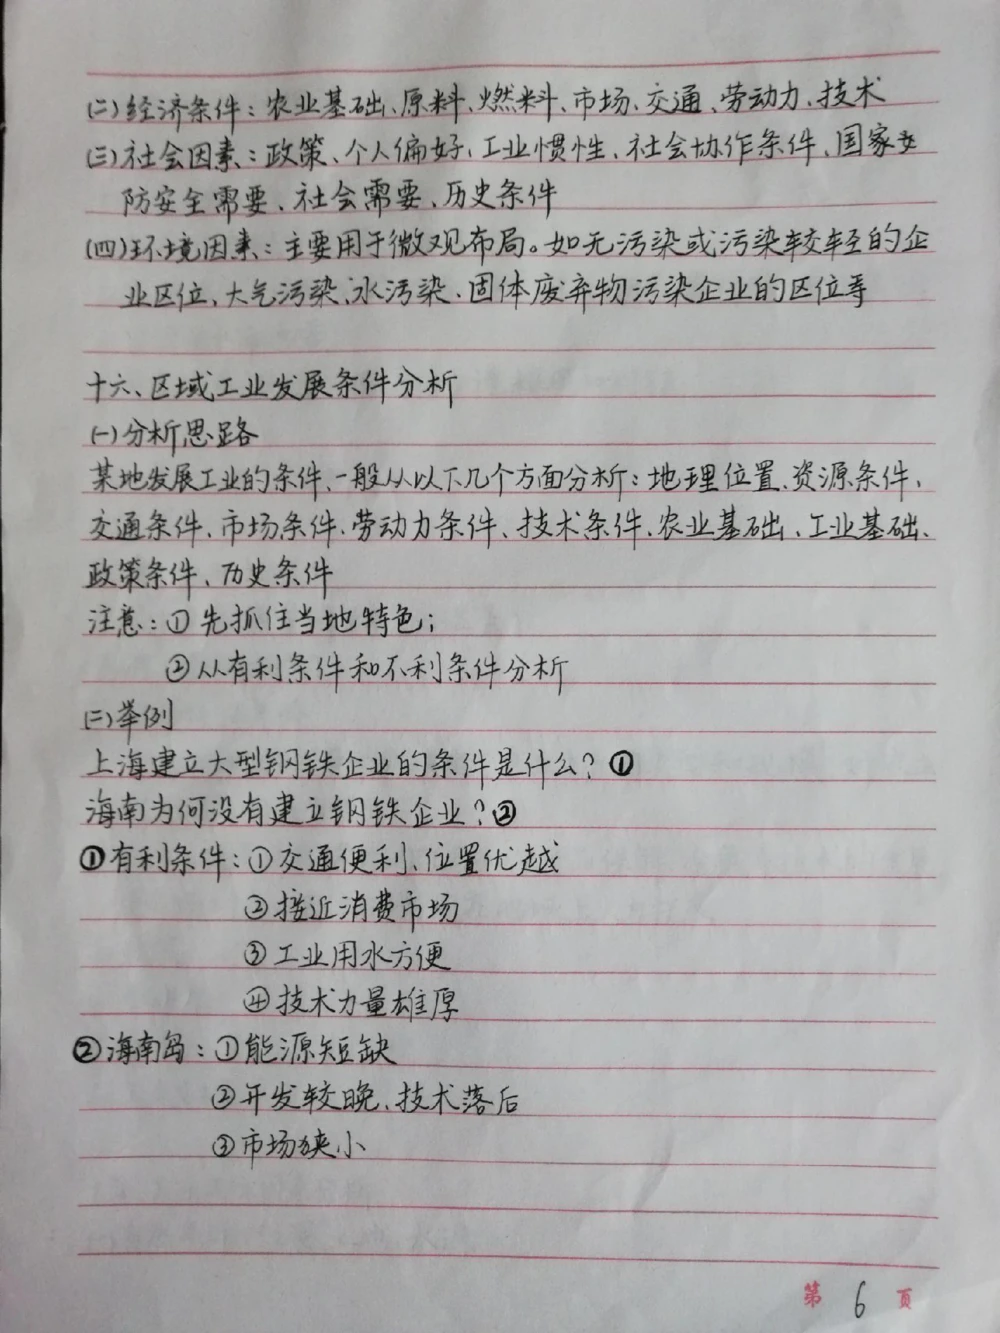 (二)经济条件：农业基础、原料、燃料、市场、交通、劳动力、技术
(三)社会因素：政策、个人偏好、工业惯性、社会协作条件、国家
防安全需要、社会需要、历史条件
(四)环境因素：主要用于微观布局。如无污染或污染较轻的企
业区位、大气污染、水污染、固体废弃物污染企业的区位等
十六、区域工业发展条件分析
(一)分析思路
某地发展工业的条件、一般从以下几个方面分析：地理位置、资源条件、
交通条件、市场条件、劳动力条件、技术条件、农业基础、工业基础、
政策条件、历史条件
注意：①先抓住当地特色；
②从有利条件和不利条件分析
(二)举例
上海建立大型钢铁企业的条件是什么？❶
海南为何没有建立钢铁企业？❷
❶有利条件：①交通便利、位置优越
②接近消费市场
③工业用水方便
④技术力量雄厚
❷海南岛：①能源短缺
②开发较晚、技术落后
③市场狭小
第 6 页